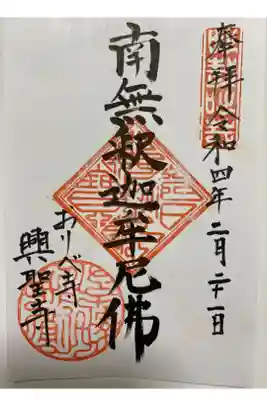 奉拝 令和四年二月二十一日
南無釈迦牟尼佛
おりべ寺
興聖寺